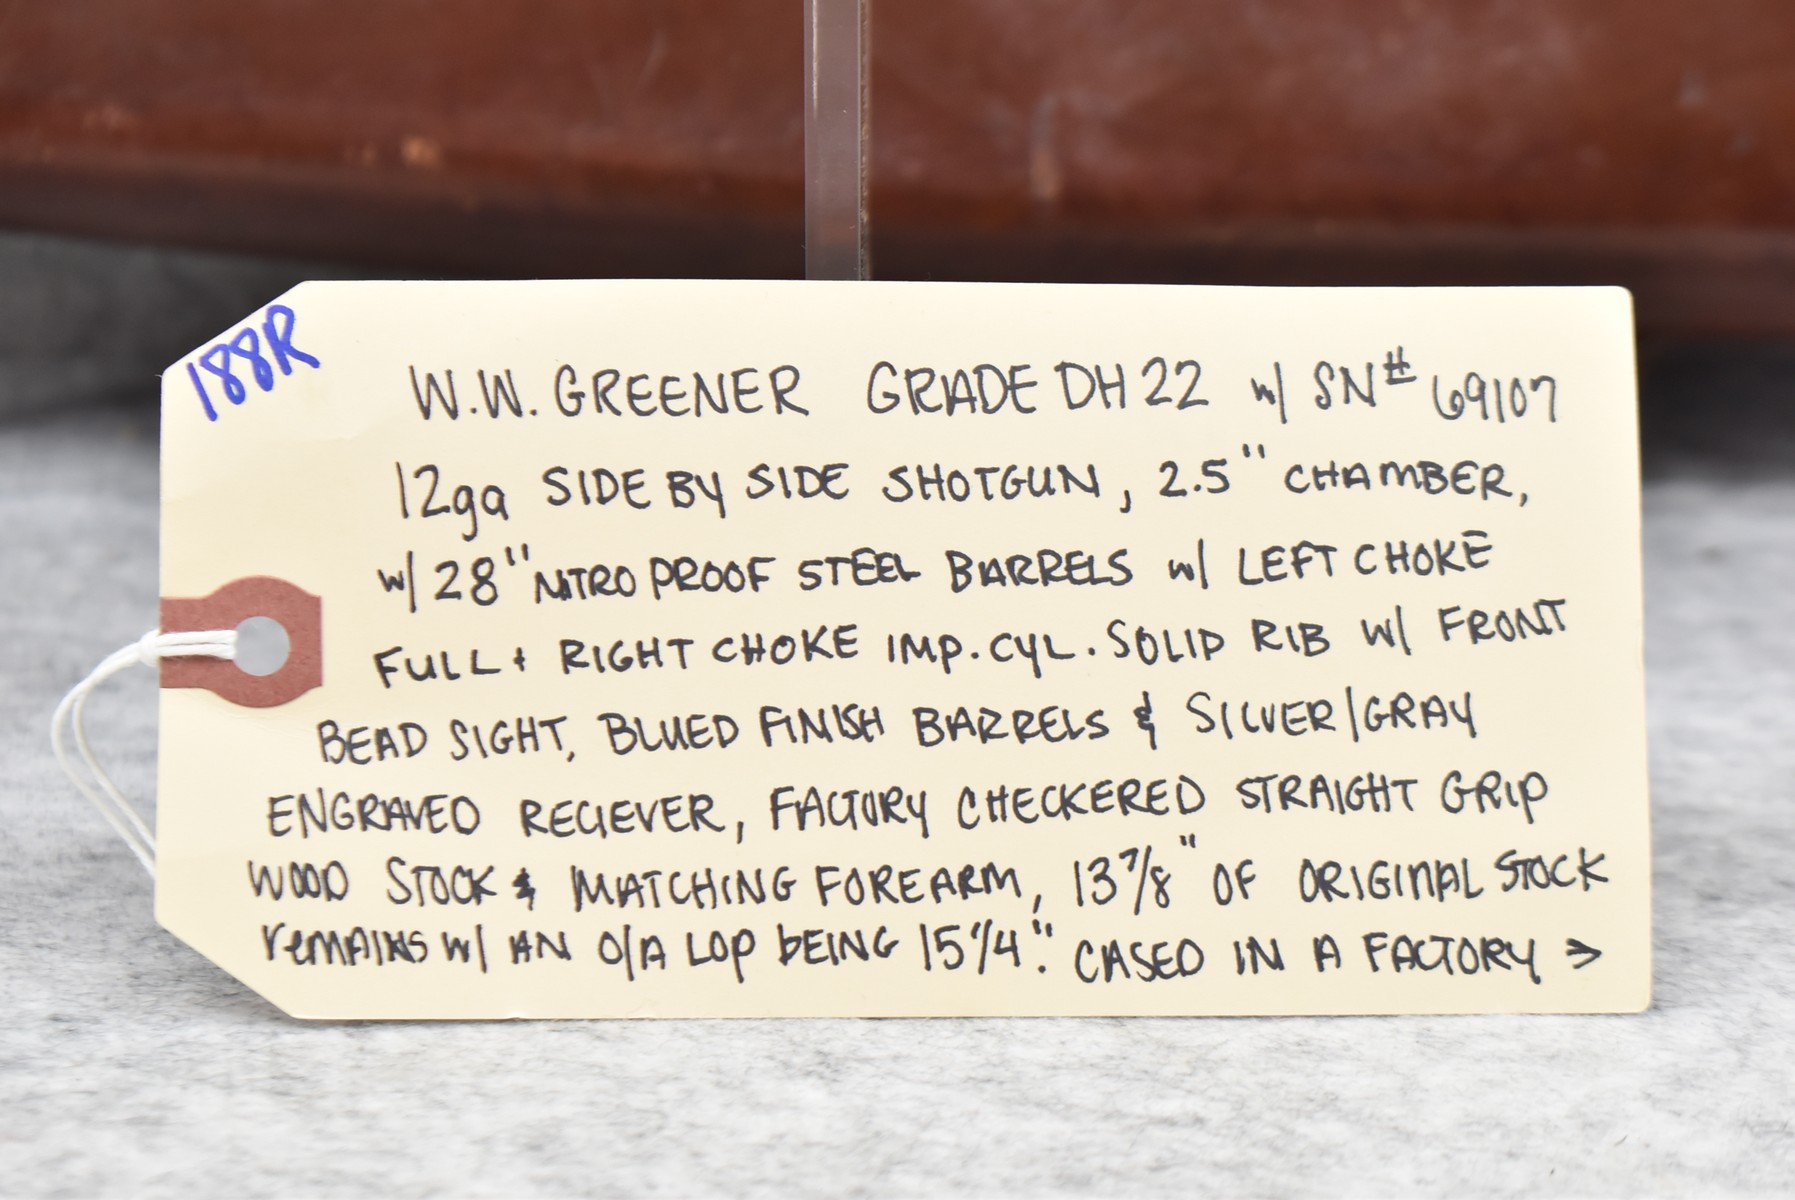 188R
W.W. GREENER GRADE DH 22 w/ SN# 69107
12ga SIDE BY SIDE SHOTGUN, 2.5" CHAMBER,
w/ 28" NITRO PROOF STEEL BARRELS w/ LEFT CHOKE
FULL + RIGHT CHOKE IMP. CYL. SOLID RIB W/ FRONT
BEAD SIGHT, BLUED FINISH BARRELS & SILVER/GRAY
ENGRAVED RECIEVER, FACTORY CHECKERED STRAIGHT GRIP
WOOD STOCK & MATCHING FOREARM, 13 7/8" OF ORIGINAL STOCK
REMAINS W/ AN O/A LOP BEING 15 1/4". CASED IN A FACTORY →